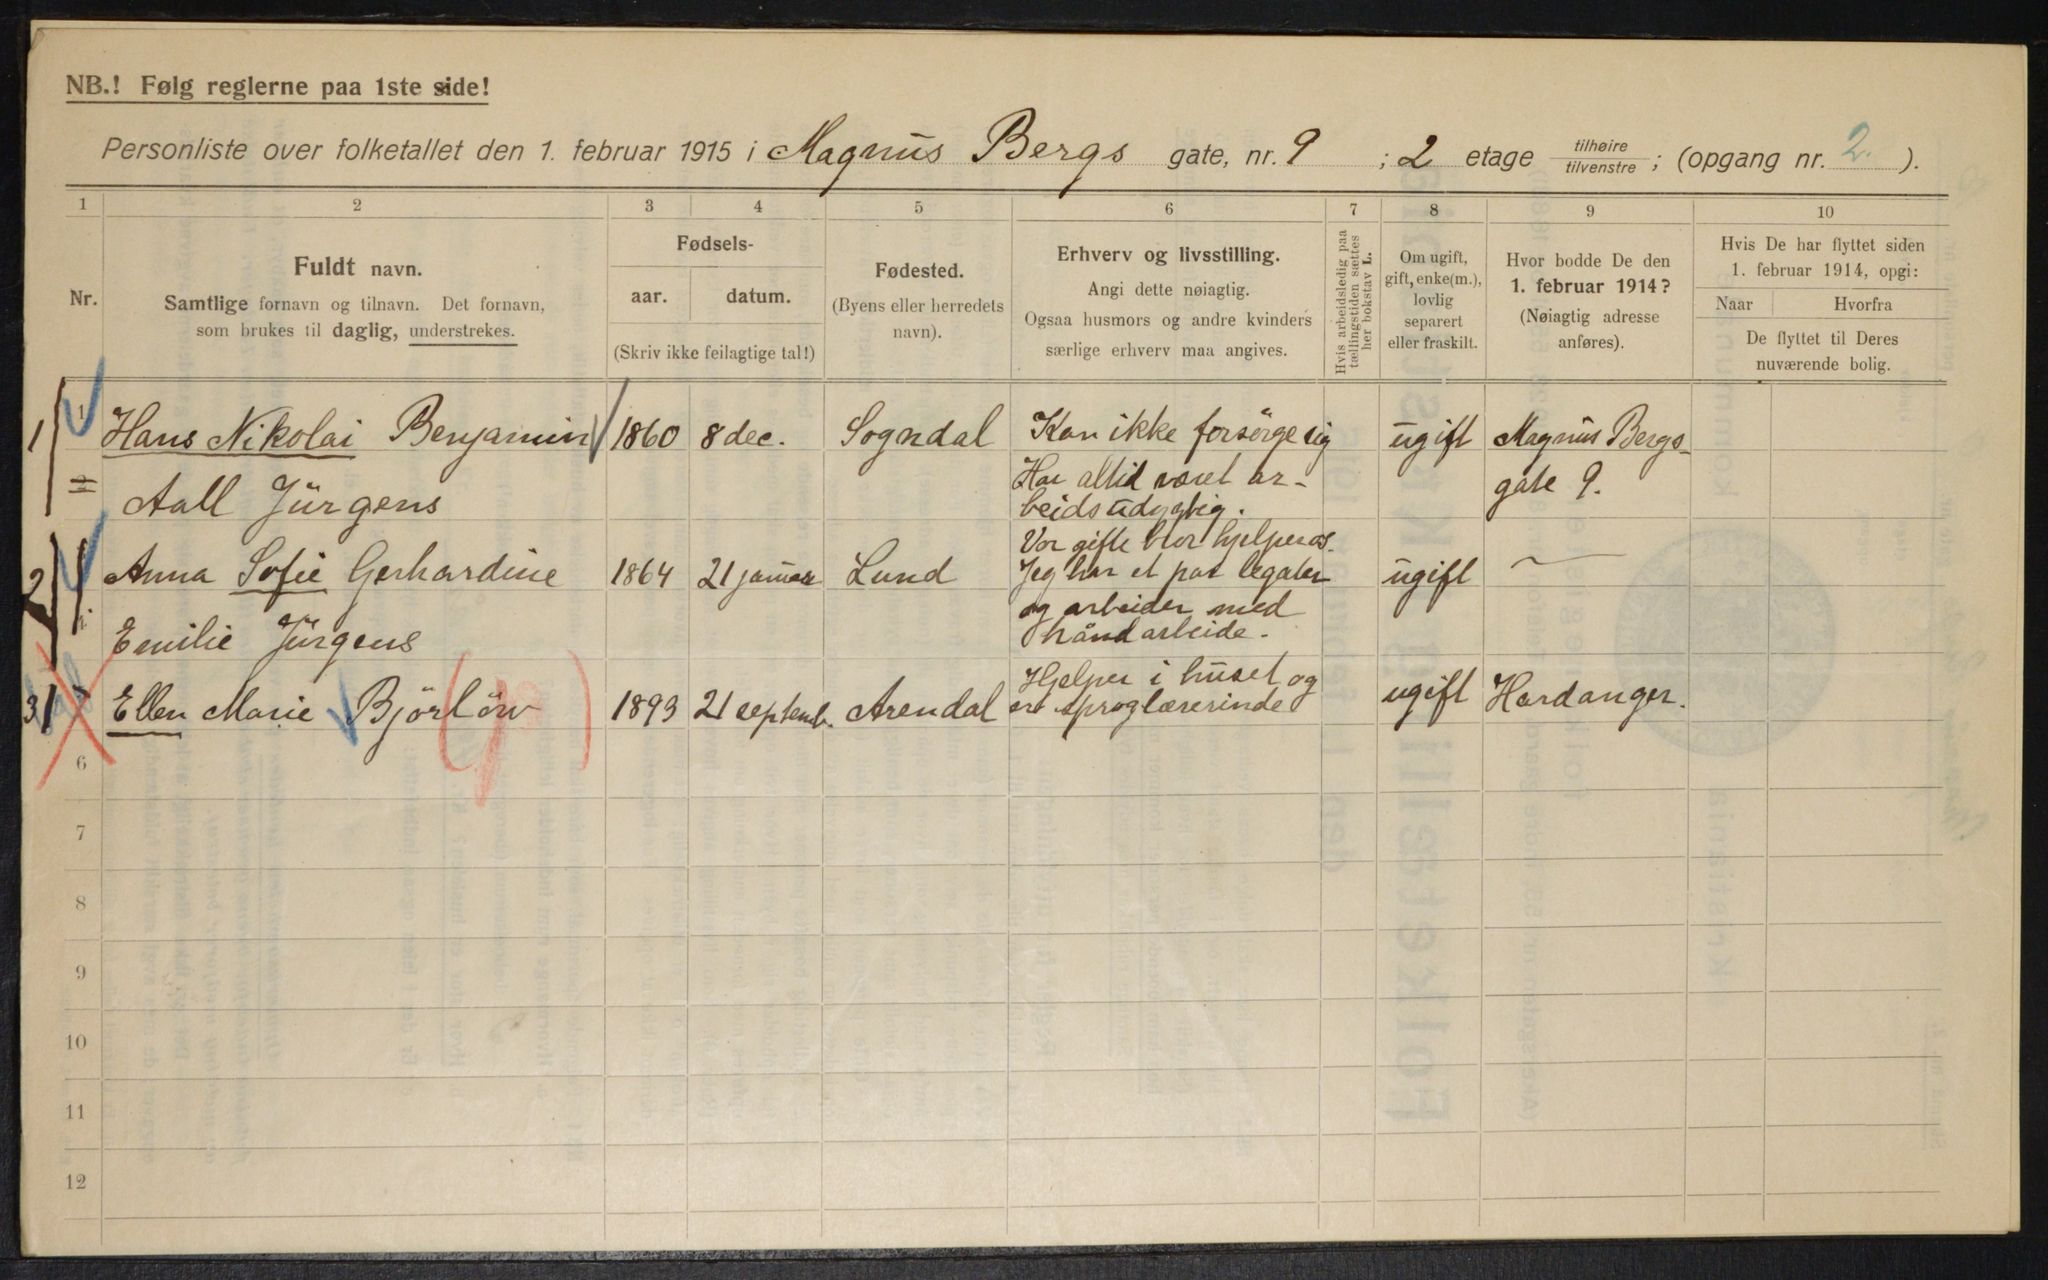 NB.! Følg reglerne paa 1ste side!
Personliste over folketallet den 1. februar 1915 i Magnus Bergs gate, nr. 9 ; 2 etage tilhøire/tilvenstre ; (opgang nr. 2. ).
1 2 3 4 5 6 7 8 9 10
Nr.
Fuldt navn.
Samtlige fornavn og tilnavn. Det fornavn,
som brukes til daglig, understrekes.
Fødsels-
aar. datum.
(Skriv ikke feilagtige tal!)
Fødested.
(Byens eller herredets
navn).
Erhverv og livsstilling.
Angi dette nøiagtig.
Ogsaa husmors og andre kvinders
særlige erhverv maa angives.
Hvis arbeidsledig paa
tællingstiden sættes
her bokstav L.
Om ugift,
gift, enke(m.),
lovlig
separert
eller fraskilt.
Hvor bodde De den
1. februar 1914?
(Nøiagtig adresse
anføres).
Hvis De har flyttet siden
1. februar 1914, opgi:
Naar Hvorfra
De flyttet til Deres
nuværende bolig.
1 Hans Nikolai Benjamin 1860 8 dec. Sogndal Kan ikke forsörge sig ugift Magnus Bergs-
Aall Jürgens Har altid været ar- gate 9.
beidsudygtig.
2 Anna Sofie Gerhardine 1864 21 januar Lund Jeg har et par legater ugift —
og arbeider med
Emilie Jürgens håndarbeide.
3 Ellen Marie Björlöw 1893 21 septemb. Arendal Hjelper i huset og ugift Hardanger.
er sproglærerinde
6
7
8
9
10
11
12